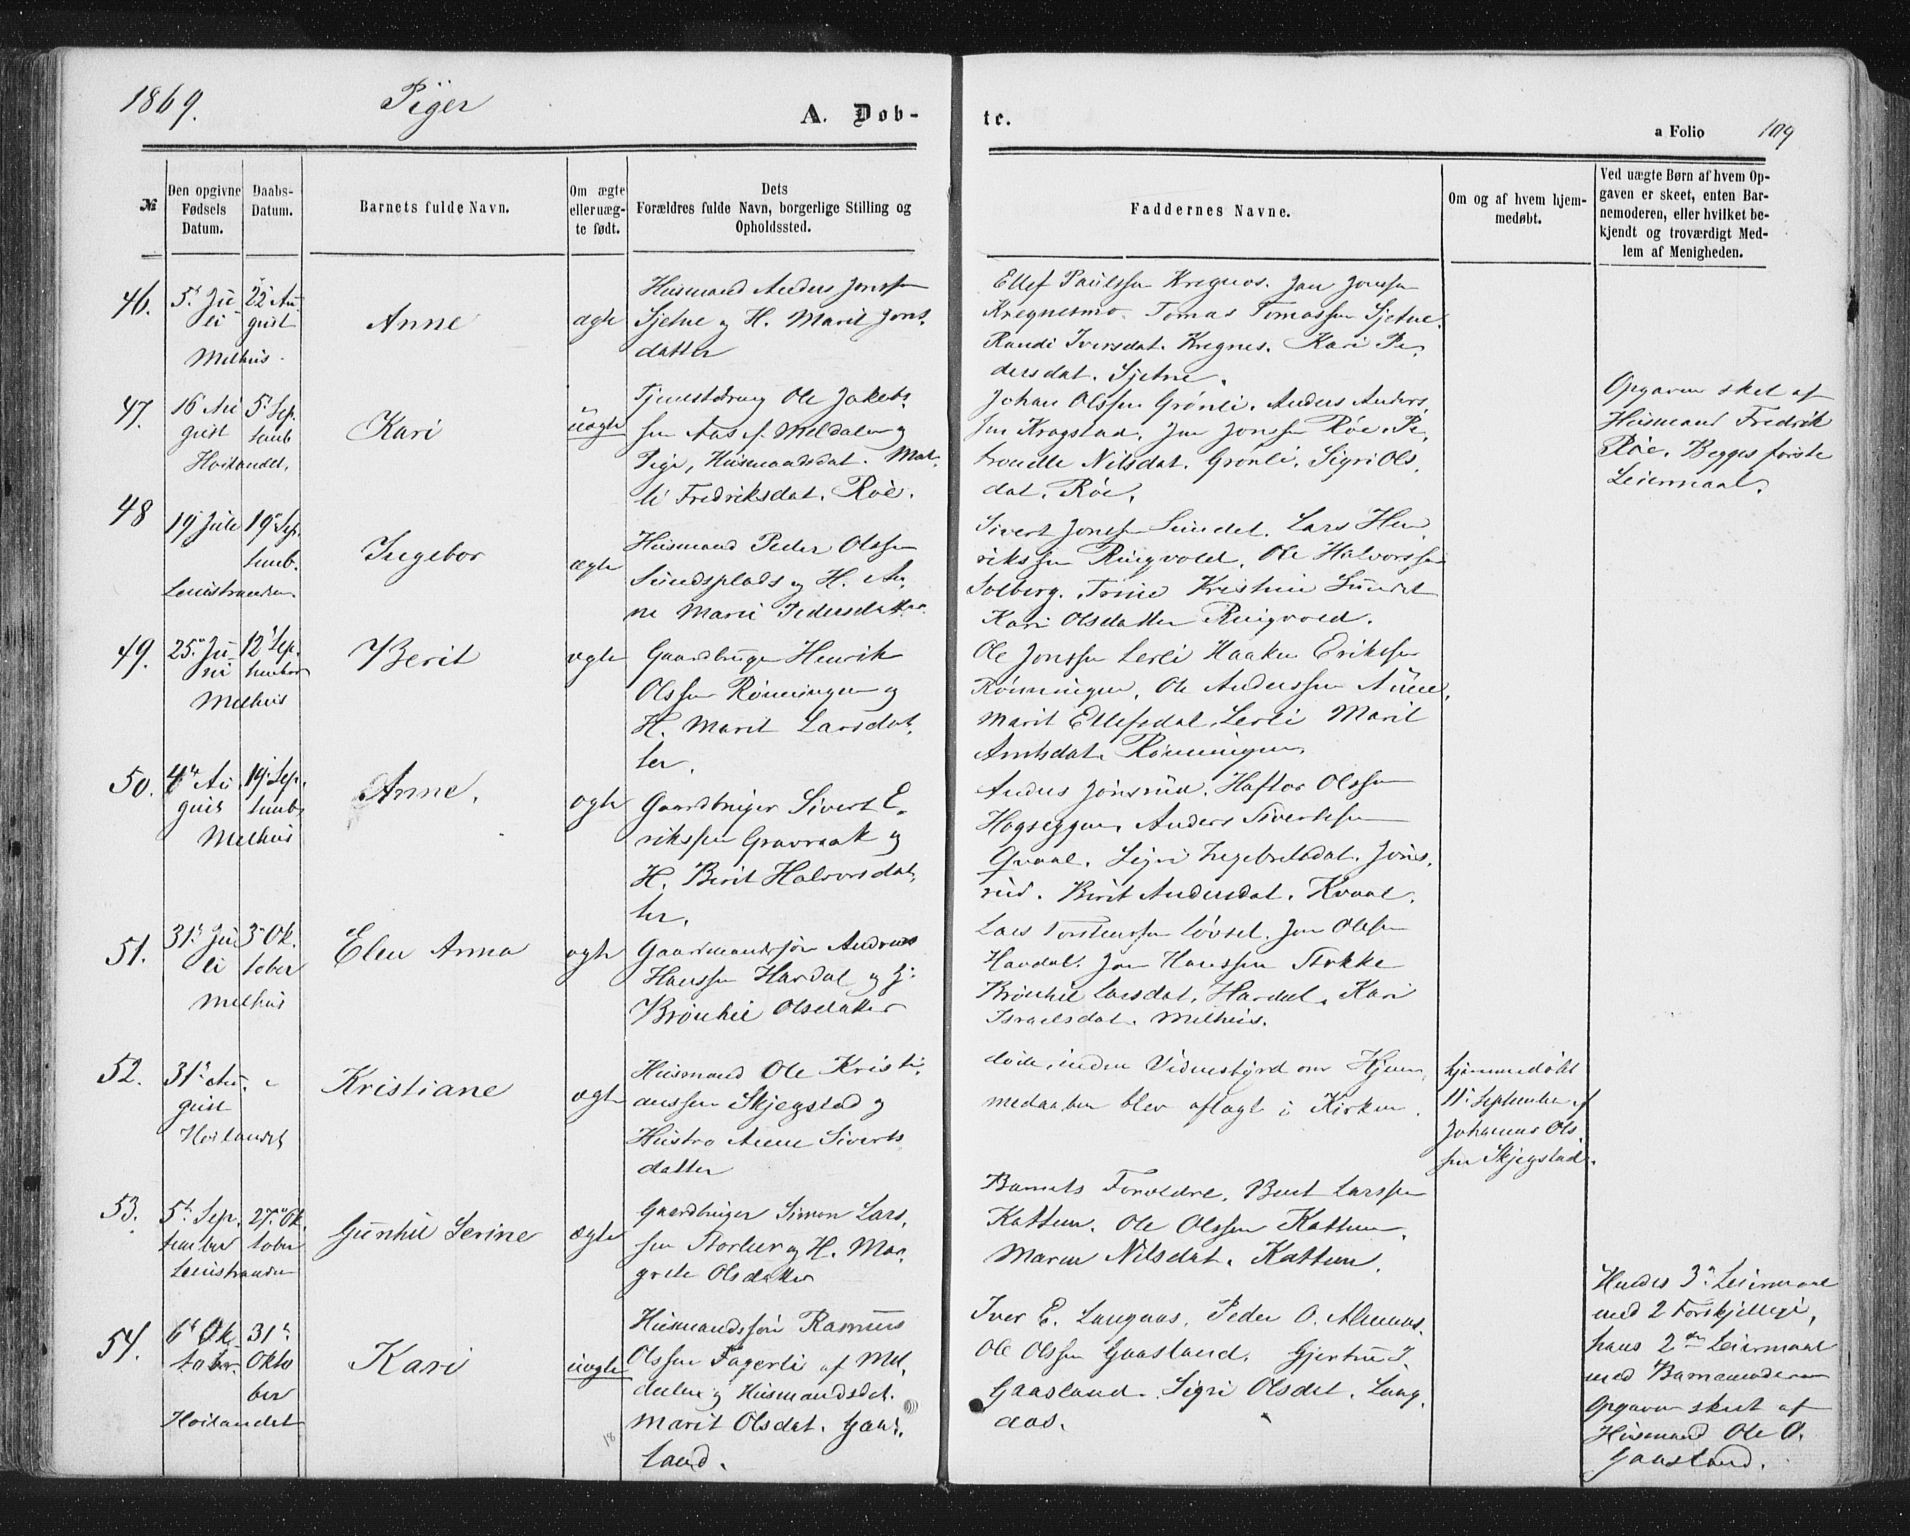 1869. Piger A. Døb-
te.
a Folio 109
№
Den opgivne Fødsels Datum.
Daabs-Datum.
Barnets fulde Navn.
Om ægte eller uæg-te født.
Dets
Forældres fulde Navn, borgerlige Stilling og
Opholdssted.
Faddernes Navne.
Om og af hvem hjem-
medøbt.
Ved uægte Børn af hvem Op-
gaven er skeet, enten Bar-
nemoderen, eller hvilket be-
kjendt og troværdigt Med-
lem af Menigheden.
46. 5te Ju 22 Au
li gust
Melhus.
Anne
ægte
Husmand Anders Jonssen
Sjetne og H. Marit Jons
datter
Ellef Paulssen Kregnes. Jon Jonssen
Kregnesmo. Tomas Tomassen Sjetne.
Randi Iversdat. Kregnes. Kari Pe
dersdat. Sjetne.
47. 16 Au 5 Sep
gust temb
Høilandet.
Kari
uægte
Tjenestedreng Ole Jakobs
sen Aas f. Meldalen og
Pige, Husmandsdat. Mar
li Fredriksdat. Røe.
Johan Olssen Grønli. Anders Anders
sen Krogstad. Jon Jonssen Røe. Pe
tronelle Nilsdat. Grønli. Sigri Ols
dat. Røe.
Opgaven sket af
Husmand Fredrik
Røe. Begges første
Leiermaal.
48 19 Juli 19 Sep.
temb.
Leinstranden
Ingebor
ægte
Husmand Peder Olssen
Sundsplads og H. An
ne Marie Pedersdatter
Sivert Jonssen Sundet. Lars Hen
rikssen Ringvold. Ole Halvorssen
Solberg. Trine Kristine Sundet
Kari Olsdatter Ringvold.
49. 25 Ju 12 Sep.
ni tember
Melhus
Berit
ægte
Gaardbruger Henrik
Olssen Rønningen og
H. Marit Larsdat
ter.
Ole Jonssen Lerli Haaken Erikssen
Rønningen. Ole Anderssen Aune.
Marit Ellefsdat. Lerli Marit
Arntsdat. Rønningen.
50. 4de Au 19 Sep.
gust temb
Melhus
Anne.
ægte
Gaardbruger Sivert E
rikssen Gravraak og
H. Berit Halvorsdat
ter.
Anders Jønsrud. Haftor Olssen
Hogseggen Anders Sivertssen
Qvaal. Sigri Ingebretsdat. Jøns
rud. Berit Andersdat. Kvaal.
51. 31 Ju 3 Ok
li tober
Melhus
Elen Anna
ægte
Gaardmandssøn Andreas
Hanssen Havdal og H:
Brønhil Olsdatter
Lars Torstenssen Løvset. Jon Olssen
Havdal. Jon Hanssen Stokke
Brønhil Larsdat. Havdal. Kari
Israelsdat. Melhus.
52. 31 Au.
gust
Høilandet
Kristiane
ægte
Husmand Ole Kristi
anssen Skjegstad og
Hustro Anne Siverts
datter
døde, inden Vidnesbyrd om Hjem
medaaben blev aflagt i Kirken.
hjemmedøbt
11 September af
Johannes Ols
sen Skjegstad.
53. 5te Sep. 27 Ok
tember tober
Leinstranden
Gunhil Serine
ægte
Gaardbruger Simon Lars
sen Storler og H. Mar
grete Olsdatter
Barnets Forældre. Bent Larssen
Kattem. Ole Olssen Kattem.
Maren Nilsdat. Kattem.
54. 6 Ok 31
tober. Okto
ber
Høilandet
Kari
uægte
Husmandssøn Rasmus
Olssen Fagerli af Mel
dalen og Husmandsdat.
Marit Olsdat. Gaas
land.
18
Iver E. Langaas. Peder O. Almaas.
Ole Olssen Gaasland. Gjertru I.
Gaasland. Sigri Olsdat. Lang
aas.
Hendes 3 Leiermaal
med 2 forskjellige,
hans 2det Leiermaal
med Barnemoderen
Opgaven skeet af
Husmand Ole O.
Gaasland.